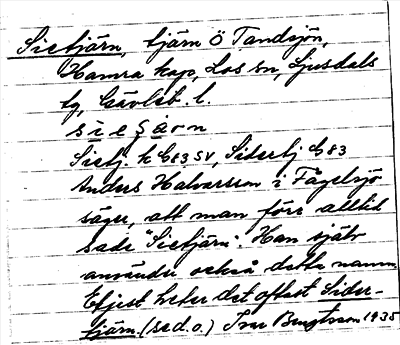 Sietjärn, tjärn Ö Tandsjön,
Hamra kap, Los sn, Ljusdals
tg, Gävleb. l.
sieʂäṛn
Sietj. k G83 SV, Sidertj G83
Anders Halvarsson i Fågelsjö
säger, att man förr alltid
sade "Sietjärn". Han själv
använder också detta namn.
Eljest heter det oftast Sider-
tjärn. (se d. o.) Ivar Bengtsson 1935